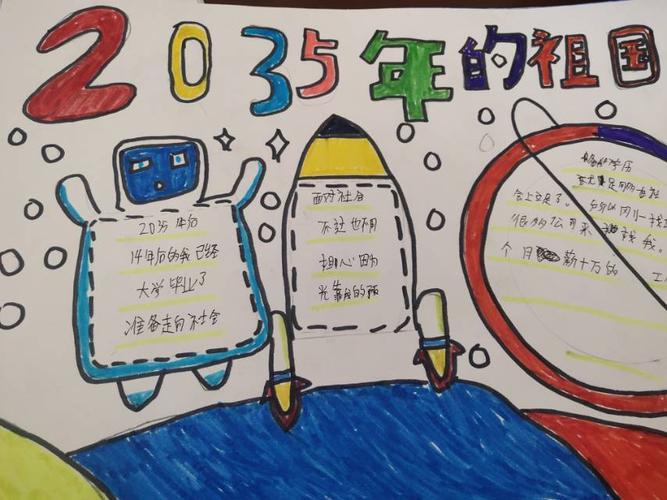 2035年的祖国
2035年后
14年后的我已经
大学毕业了
准备走向社会
面对社会
不过也不用
担心因为
光靠我的
够的学历
会上立足了。
很多公司来找我。
个月薪十万的工